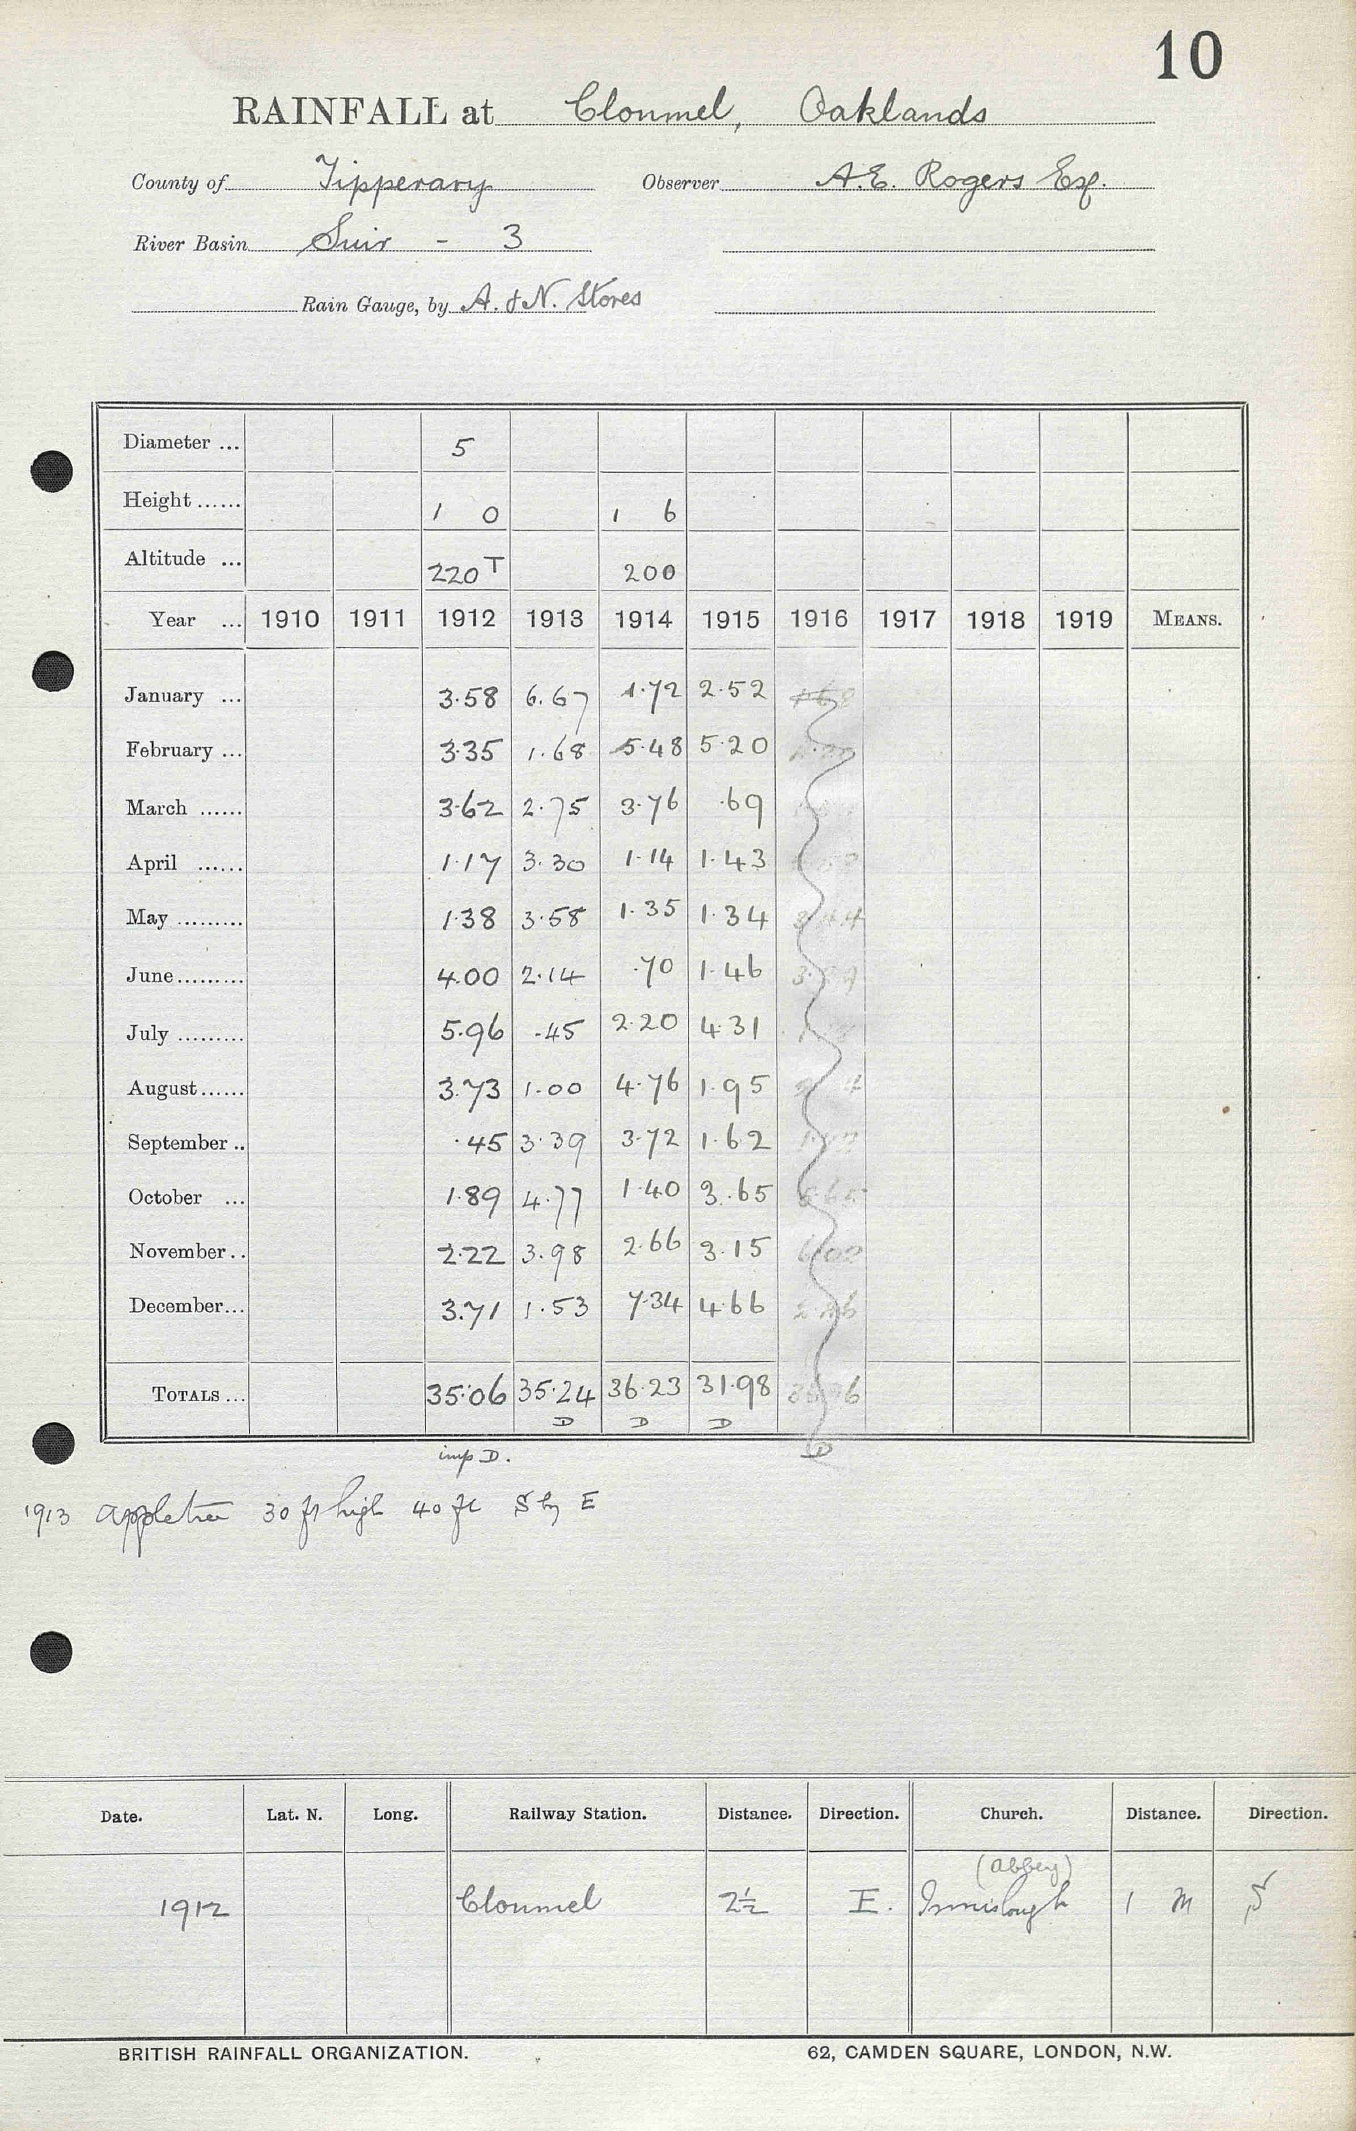 10
RAINFALL at Clonmel, Oaklands
County of Tipperary Observer A.E. Rogers Esq.
River Basin Suir - 3
Rain Gauge, by A. & N. Stores
Diameter ... 5
Height ...... 1 0 1 6
Altitude ... 220 T 200
Year ... 1910 1911 1912 1913 1914 1915 1916 1917 1918 1919 MEANS.
January ... 3.58 6.67 1.72 2.52
February ... 3.35 1.68 5.48 5.20
March ...... 3.62 2.75 3.76 .69
April ...... 1.17 3.30 1.14 1.43
May ......... 1.38 3.58 1.35 1.34
June ......... 4.00 2.14 .70 1.46
July ......... 5.96 .45 2.20 4.31
August ...... 3.73 1.00 4.76 1.95
September .. .45 3.39 3.72 1.62
October ... 1.89 4.77 1.40 3.65
November .. 2.22 3.98 2.66 3.15
December ... 3.71 1.53 7.34 4.66
TOTALS ... 35.06 35.24 36.23 31.98
D D D
imp D. D
1913 appletree 30 ft high 40 ft S by E
Date. Lat. N. Long. Railway Station. Distance. Direction. Church. Distance. Direction.
(Abbey)
1912 Clonmel 2½ E. Innislough 1 M S
BRITISH RAINFALL ORGANIZATION. 62, CAMDEN SQUARE, LONDON, N.W.